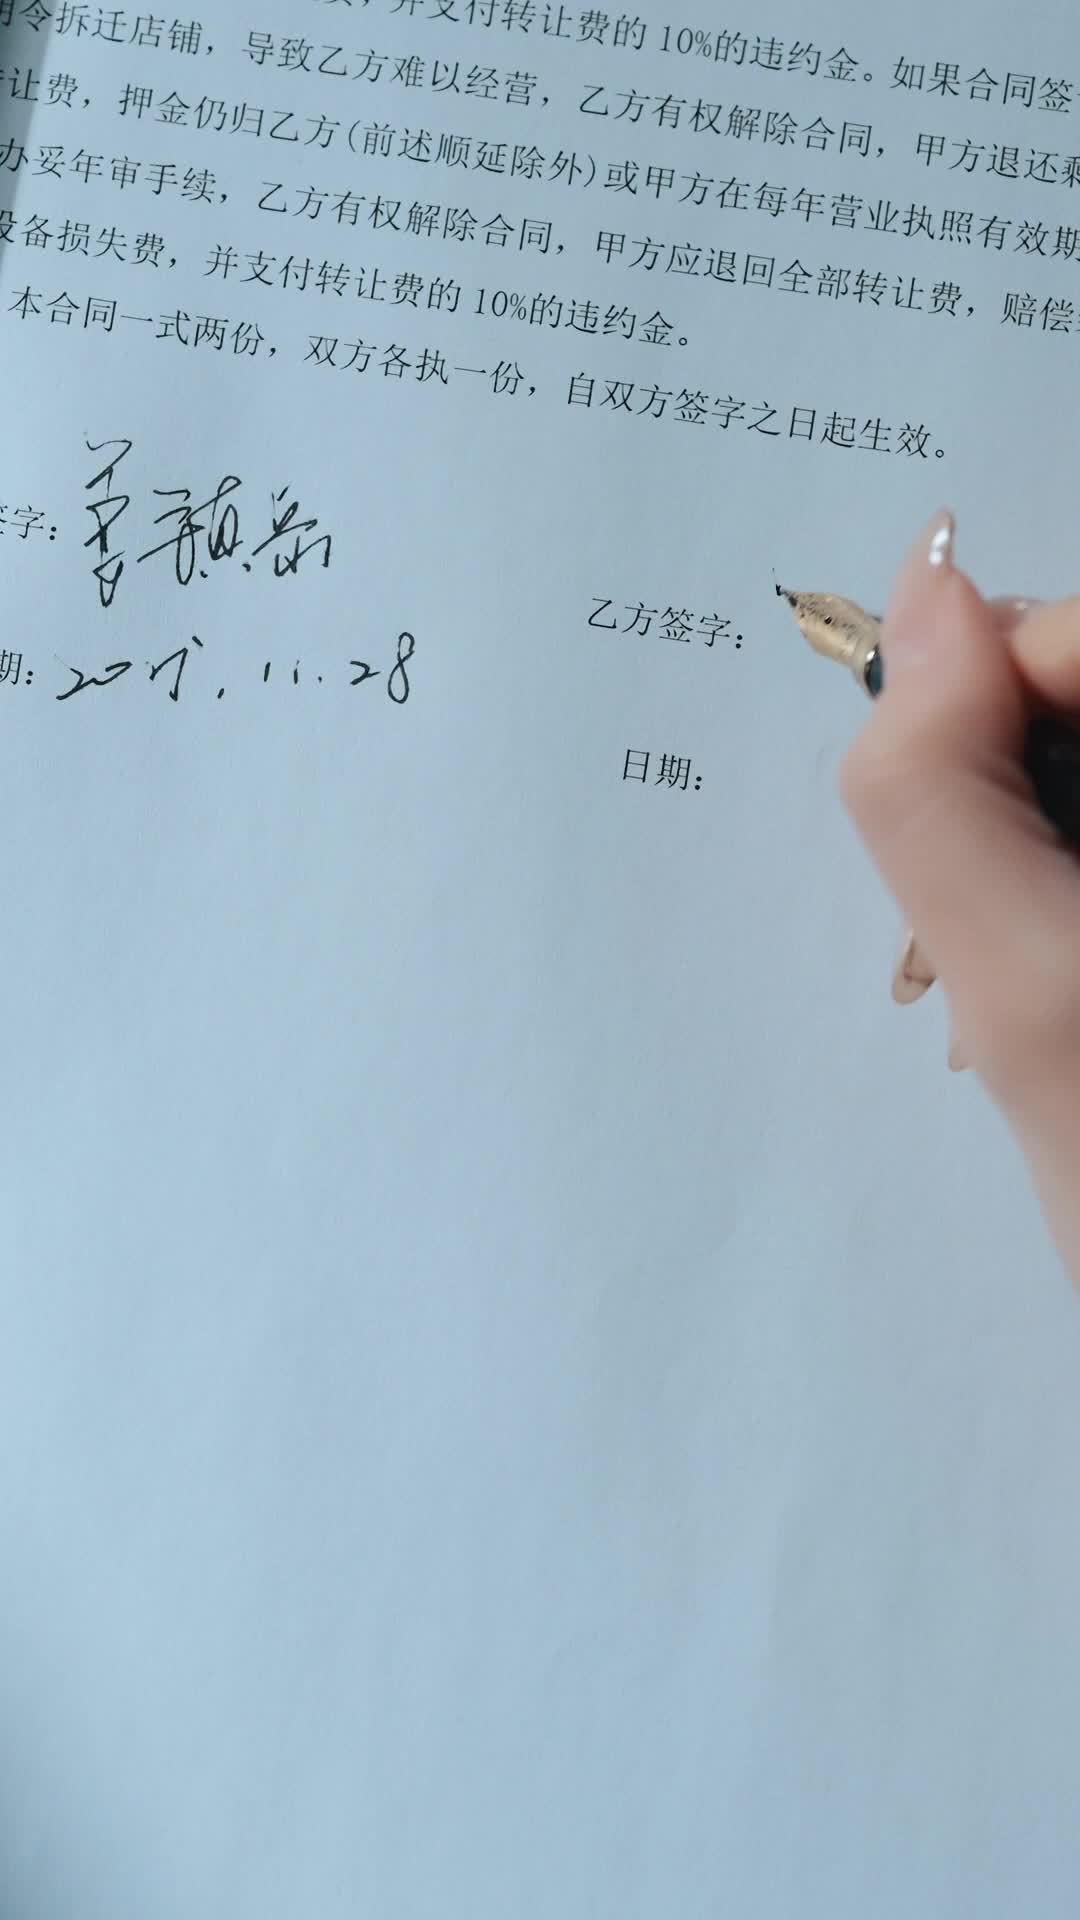 ，并支付转让费的10%的违约金。如果合同签
令拆迁店铺，导致乙方难以经营，乙方有权解除合同，甲方退还剩
让费，押金仍归乙方(前述顺延除外)或甲方在每年营业执照有效期
办妥年审手续，乙方有权解除合同，甲方应退回全部转让费，赔偿
设备损失费，并支付转让费的10%的违约金。
本合同一式两份，双方各执一份，自双方签字之日起生效。
签字：
乙方签字：
期：
11.28
日期：